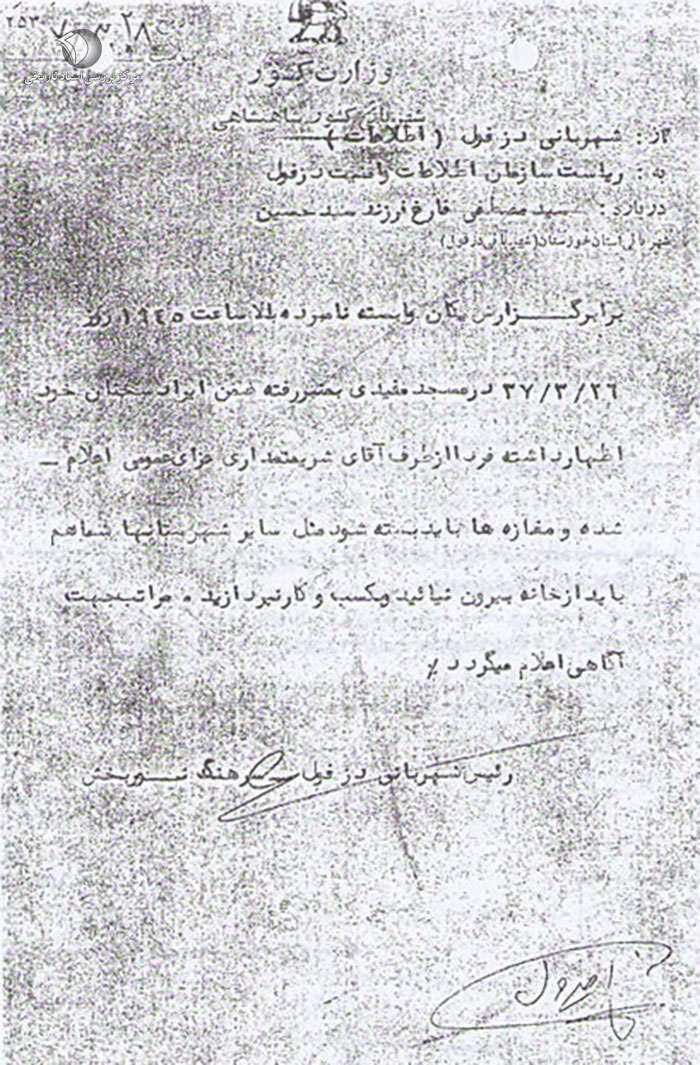 تاریخ ۲۸ ۳ ۲۵۳۷
مرکز بررسی اسناد تاریخی
وزارت کشور
شهربانی کشور شاهنشاهی
از : شهربانی دزفول ( اطلاعات )
به : ریاست سازمان اطلاعات و امنیت دزفول
درباره : سید مصطفی فارغ فرزند سید حسین
شهربانی استان خوزستان (شهربانی دزفول)
برابر گزارش یکان وابسته نامبرده بالا ساعت ۱۹۴۵ روز
۳۷/۳/۲۶ در مسجد مفیدی بمنبر رفته ضمن ایراد سخنان خود
اظهار داشته فردا از طرف آقای شریعتمداری عزای عمومی اعلام ــ
شده و مغازه ها باید بسته شود مثل سایر شهرستانها شما هم
باید از خانه بیرون نیائید و بکسب و کار نپردازید . مراتب جهت
آگاهی اعلام میگردد
رئیس شهربانی دزفول ــ سرهنگ